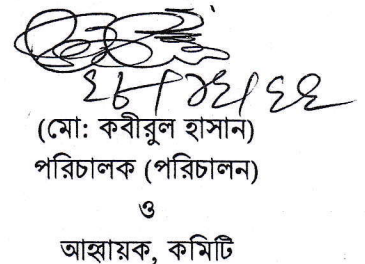 (মো: কবীরুল হাসান)
পরিচালক (পরিচালন)
ও
আহ্বায়ক, কমিটি